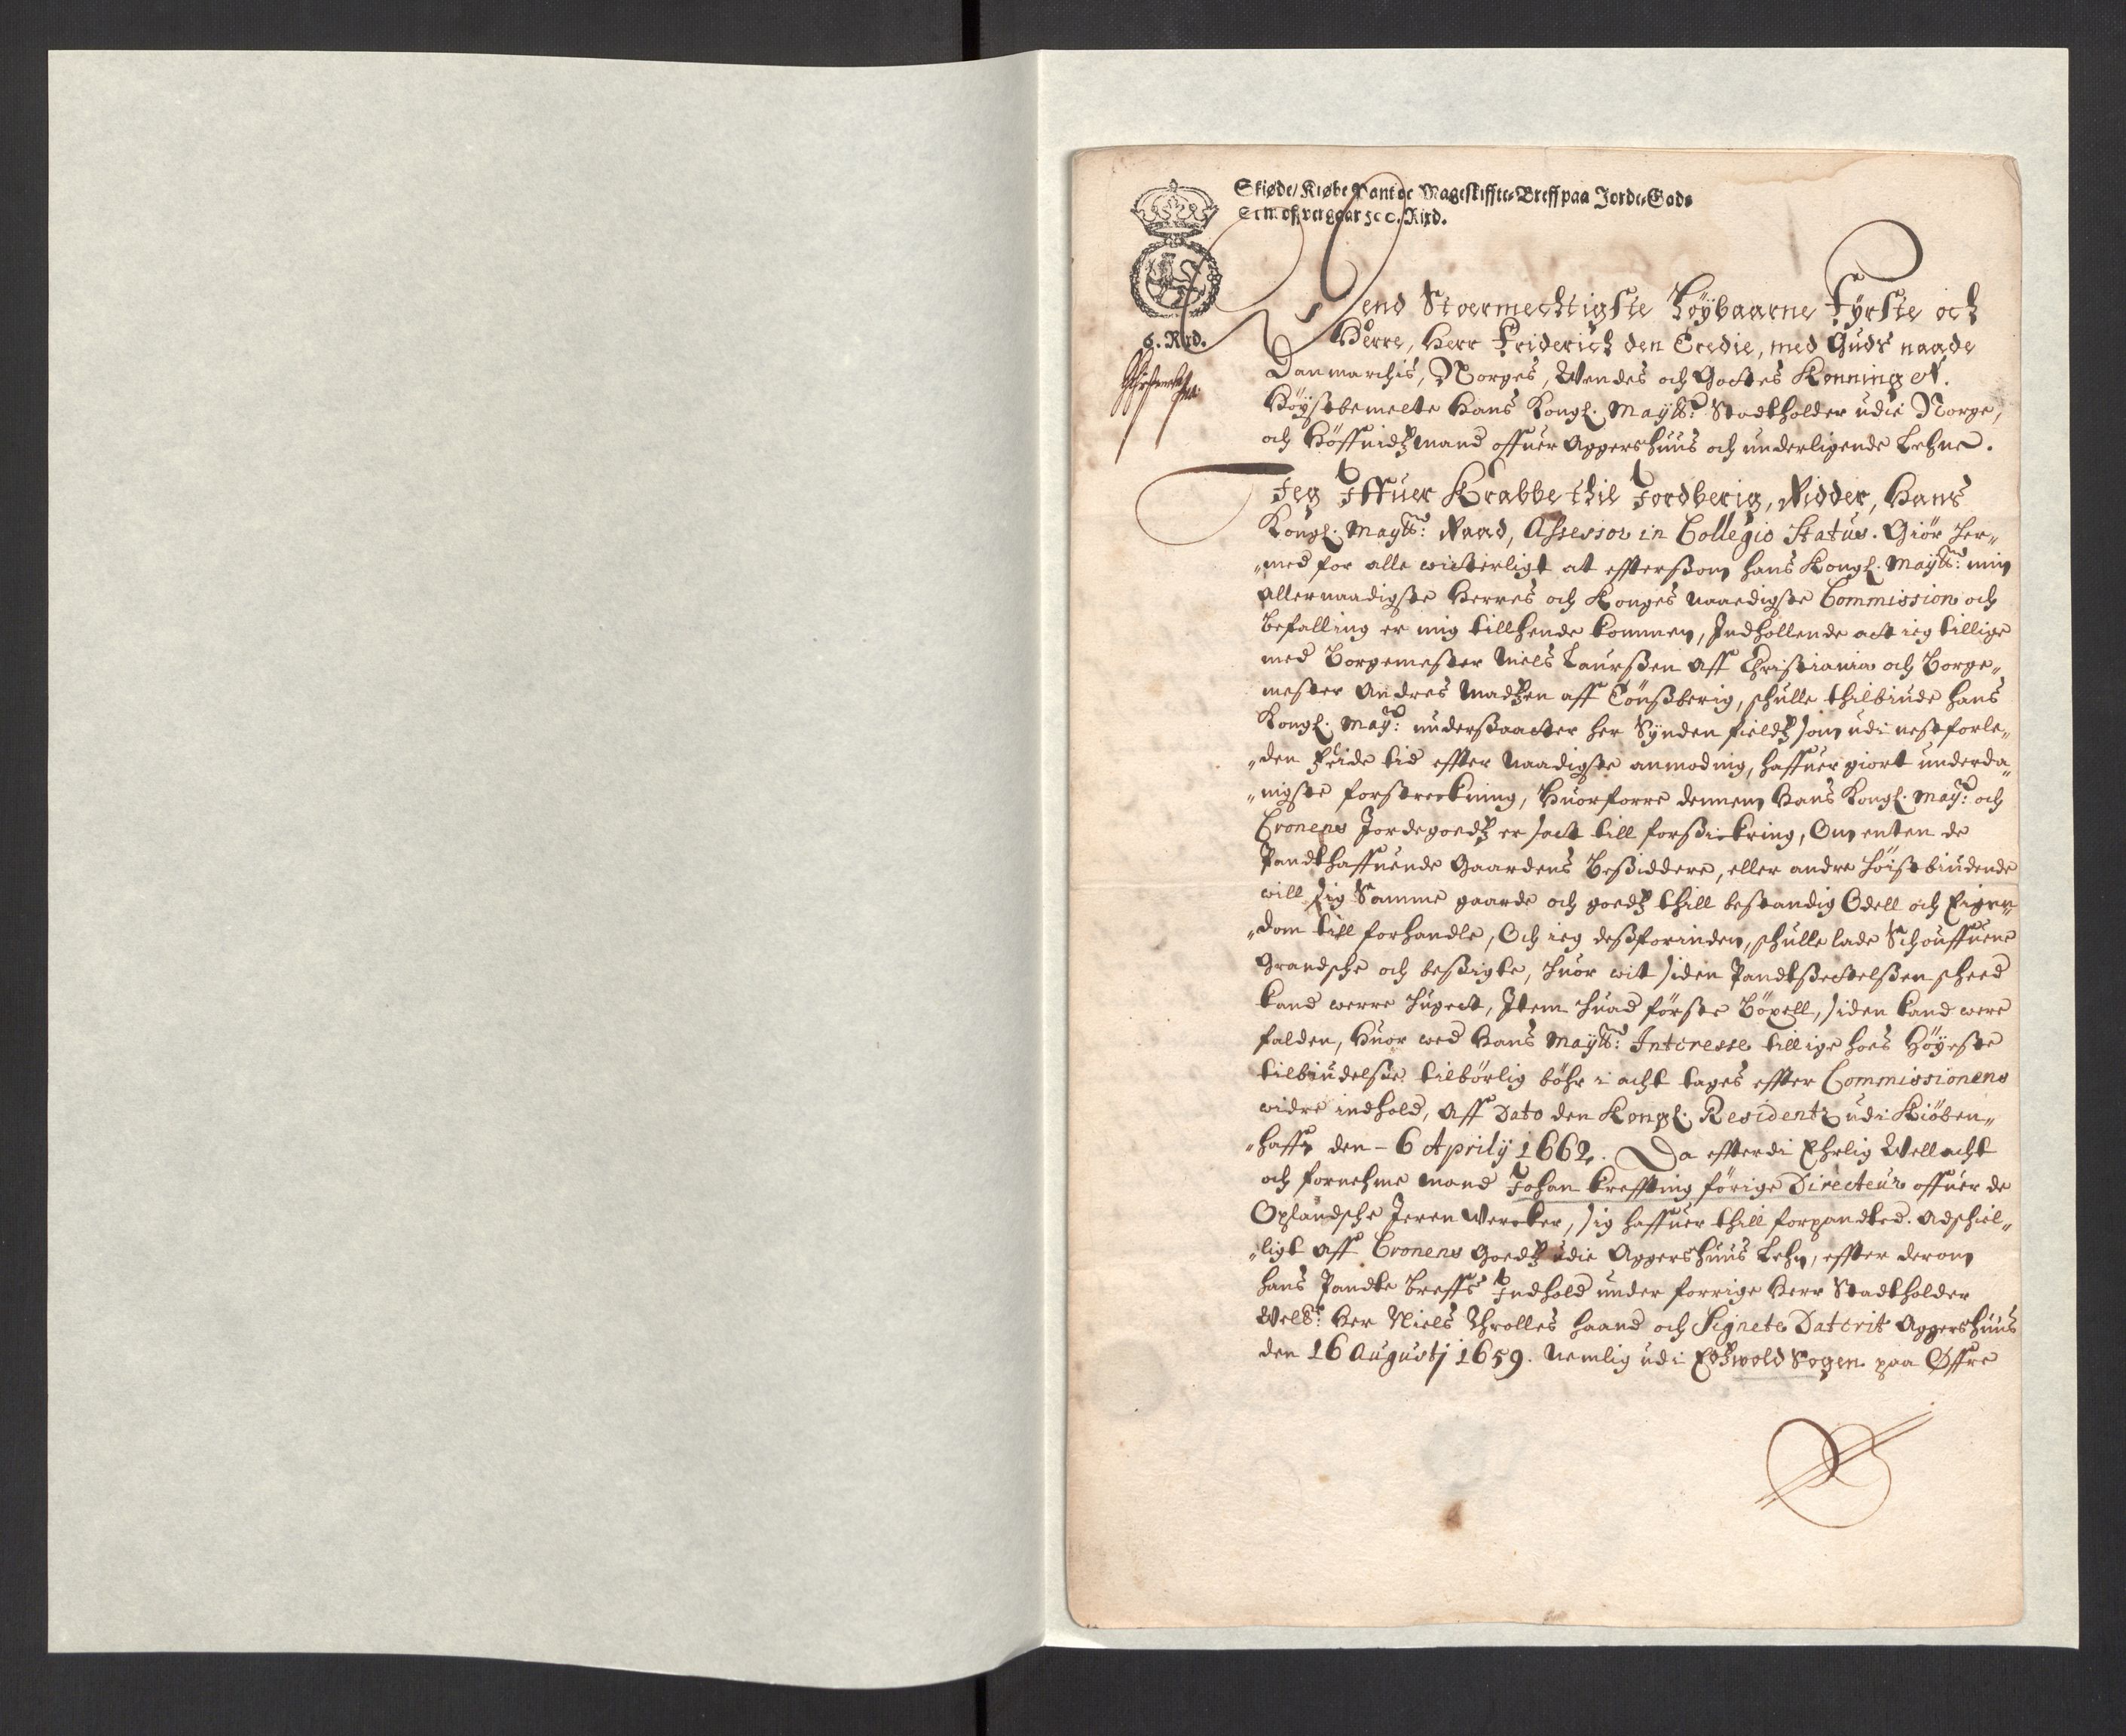 Skiøde/ Kiøbe Pant oc Mageskiffte-Breff paa Jorde-Gods
Som offvergaar 500. Rixd.
6. Rixd.
Dend Stoermechtigste Høÿbaarne Fÿrste och
Herre, Herr Friderich den Tredie, med Guds naade
Danmarchis, Norges, Wendes och Gottes Konning etc.
Høÿstbemelte Hans Kongl. Maÿtts: Stadtholder udie Norge,
och Höffuidtzmand offuer Aggershuus och underligende Lehne.
Jeg Iffuer Krabbe thil Jordberig, Ridder, Hans
Kongl. Maÿtts: Raad, Assessor in Collegio Status. Giör her„
„med for alle witterligt at effterssom hans Kongl. Maÿtts: min
allernaadigste Herres och Konges naaedigste Commission och
Befalling er mig tillhende kommen, Indhollende att ieg tillige
med Borgemester Niels Laurssen aff Christiania och Borge„
mester Andres Madtzen aff Tönssberig, schulle thilbiude hans
Kongl. Maÿ: underssaatter her Sÿnden fieldtz som udi nestforle„
„den feide tid effter naadigste anmoding, haffuer giort underda„
„nigste forstreckning, Huorforre dennem Hans Kongl. Maÿ: och
Cronens Jordegoedtz er satt till forssickring, Om enten de
Pandthaffuende Gaardens Bessiddere, eller andre höistbiudende
will sig Samme gaarde och goedtz thill bestandig Odell och Eigen„
„dom till forhandle, Och ieg dessforinden, schulle lade Schouffuene
Grandsche och bessigte, huor wit siden Pandtssettelssen scheed
kand werre hugett, Item huad förste Böxell, siden kand were
falden, Huor wed Hans Maÿtts: Interesse tillige hoes Höÿeste
tilbiudelsse tilbörlig böhr i acht tages effter Commissionens
widre indhold, aff Dato den Kongl. Residentz udi Kiöben„
„haffn den - 6 Aprilÿ 1662. Da efterdi Ehrlig Wellacht
och fornehme mand Johan Kreffting förige Directeur offuer de
Oplandsche Jeren Wercker, sig haffuer thill forpandted. Adschil„
„ligt aff Cronens Goedtz udie Aggershuus Lehn, effter derom
hans Pandte Breffs Indhold under forrige Herr Stadtholder
Welb: Her Niels Throlles haand och Signete Daterit Aggershuus
den 16 Augustj 1659. Nemlig udi Edtzwold Sogen paa Øffre